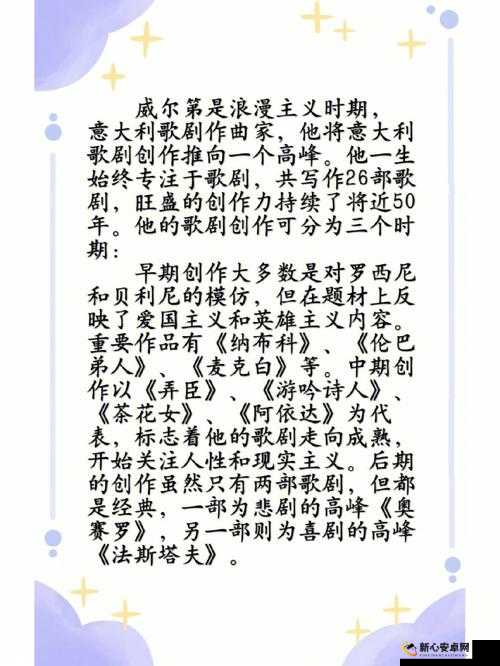 威尔第是浪漫主义时期，
意大利歌剧作曲家，他将意大利
歌剧创作推向一个高峰。他一生
始终专注于歌剧，共写作26部歌
剧，旺盛的创作力持续了将近50
年。他的歌剧创作可分为三个时
期：
早期创作大多数是对罗西尼
和贝利尼的模仿，但在题材上反
映了爱国主义和英雄主义内容。
重要作品有《纳布科》、《伦巴
弟人》、《麦克白》等。中期创
作以《弄臣》、《游吟诗人》、
《茶花女》、《阿依达》为代
表，标志着他的歌剧走向成熟，
开始关注人性和现实主义。后期
的创作虽然只有两部歌剧，但都
是经典，一部为悲剧的高峰《奥
赛罗》，另一部则为喜剧的高峰
《法斯塔夫》。
新心安卓网